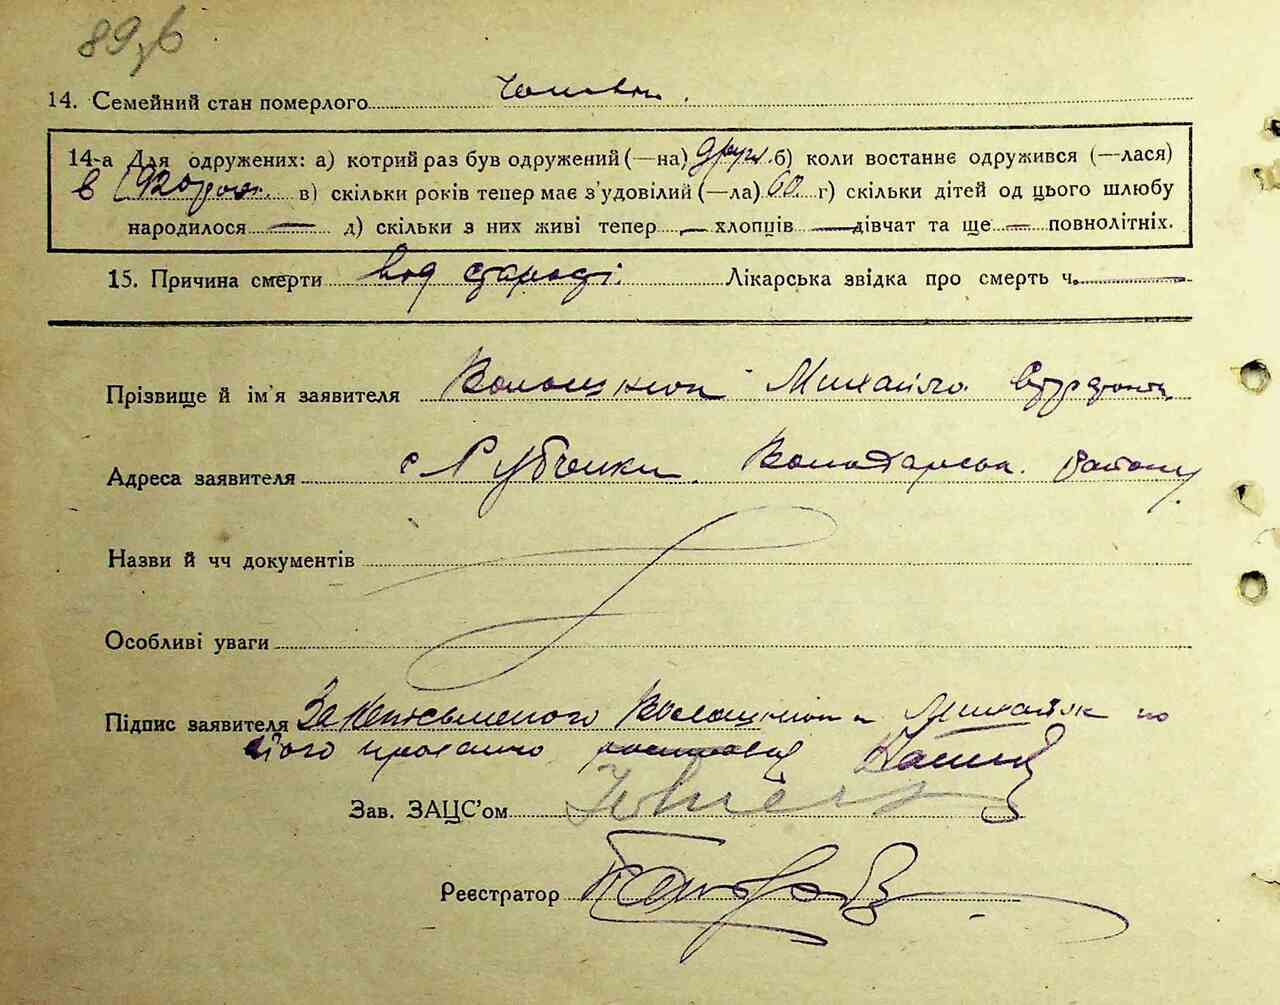 89
14. Семейний стан померлого
14-а Для одружених: а) котрий раз був одружений (—на) други б) коли востаннє одружився (—лася)
в 1920 році в) скільки років тепер має з'удовілий (—ла) 60 г) скільки дітей од цього шлюбу
народилося — д) скільки з них живі тепер — хлопців — дівчат та ще — повнолітніх.
15. Причина смерти від старості. Лікарська звідка про смерть ч. —
Прізвище й ім'я заявителя Михайло
Адреса заявителя с Рубченки Володарськ. району
Назви й чч документів
Особливі уваги
Підпис заявителя За неписьменого Михайла по
його проханню
Зав. ЗАЦС'ом
Реєстратор